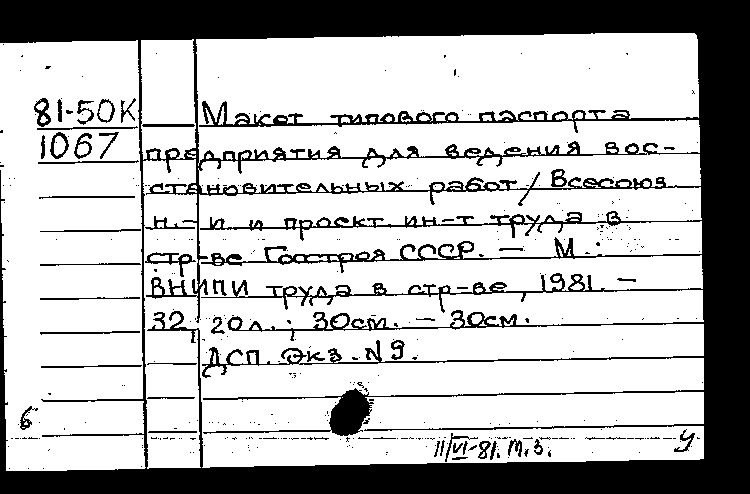 81-50К Макет типового паспорта
1067 предприятия для ведения вос-
становительных работ / Всесоюз.
н.-и. и проект. ин-т труда в
стр-ве Госстроя СССР. — М.:
ВНИПИ труда в стр-ве, 1981. -
32, 20л.; 30см. - 30см.
ДСП. Экз. N 9.
б
11/VI-81. М.З. У